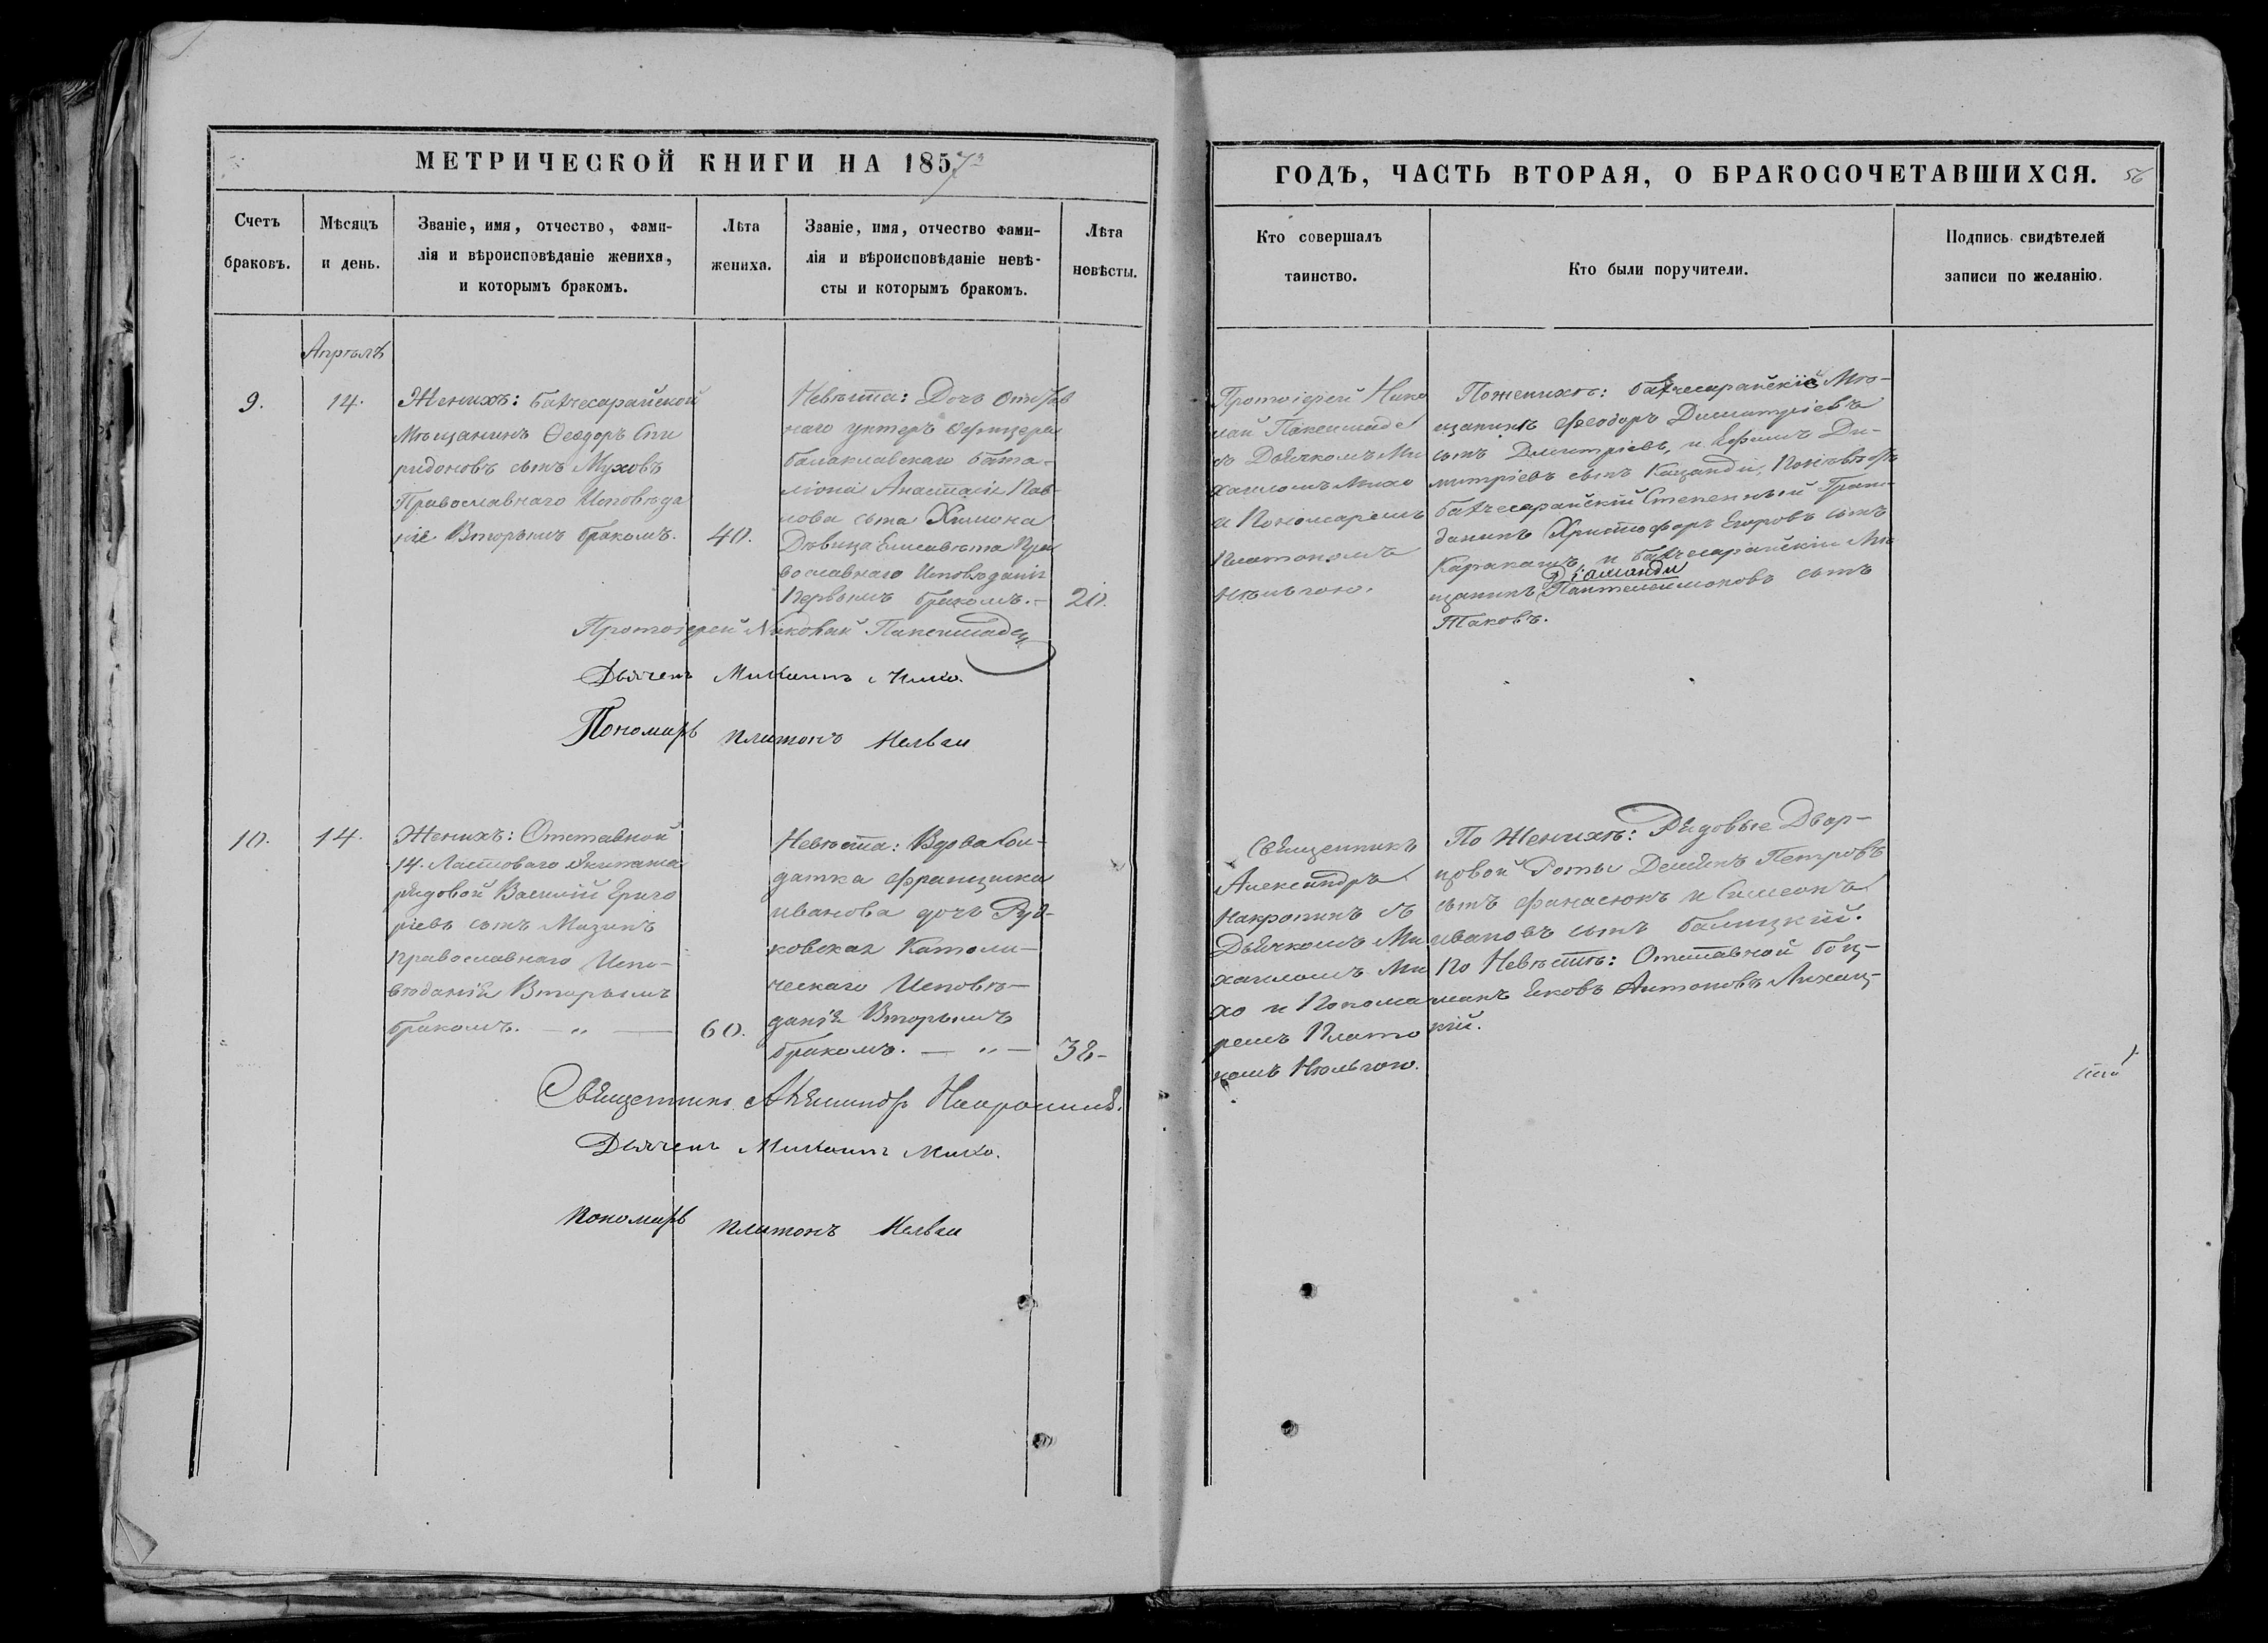 МЕТРИЧЕСКОЙ КНИГИ НА 1857
Счетъ браковъ.
Мѣсяцъ и день.
Званіе, имя, отчество, фами-
лія и вѣроисповѣданіе жениха,
и которымъ бракомъ.
Лѣта жениха.
Званіе, имя, отчество фами-
лія и вѣроисповѣданіе невѣ-
сты и которымъ бракомъ.
Лѣта невѣсты.
Апрѣль
9.
14.
Женихъ: Бахчесарайской
Мѣщанинъ Ѳеодоръ Спи
ридоновъ сынъ Муховъ
Православнаго Исповѣда
ніе Вторымъ бракомъ.
40.
Невѣста: Дочь Отстав
наго унтеръ Офицера
Балаклавскаго бата-
ліона Анастаси Пав-
лова сына Химона
Дѣвица Елисавета Пра
вославнаго Исповѣданія
Первымъ бракомъ.
20.
Протоіерей Николай
Дьячекъ Михаилъ Михо.
Пономарь Платонъ
10.
14.
Женихъ: Отставной
14. Ластоваго Экипажа
рядовой Василій Григо
ріевъ сынъ Мазинъ
Православнаго Испо-
вѣданія Вторымъ
бракомъ. — „ —
60.
Невѣста: Вдова Сол-
датка Францишка
Иванова дочь Руд-
ковская Католи-
ческаго Исповѣ-
данія Вторымъ
бракомъ. — „ —
38-
Священникъ Александръ
Дьячекъ Михаилъ Михо.
Пономарь Платонъ
ГОДѢ, ЧАСТЬ ВТОРАЯ, О БРАКОСОЧЕТАВШИХСЯ. 56
Кто совершалъ
таинство.
Кто были поручители.
Подпись свидѣтелей
записи по желанію.
Протоіерей Нико
лай
съ Дьячкомъ Ми
хаиломъ Михо
и Пономаремъ
Платономъ
По женихѣ: Бахчесарайскіе Мѣ-
щанинъ Феодоръ Димитріевъ
сынъ Дмитріевъ, и Ефимъ Ди-
митріевъ сынъ Кацанди, По невѣстѣ
Бахчесарайскій Степенный Граж-
данинъ Христофоръ Егоровъ сынъ
Каракашъ, и Бахчесарайскій Мѣ
Діаманди
щанинъ Пантелеимоновъ сынъ
Таковъ.
Священникъ
Александръ
съ
Дьячкомъ Ми
хаиломъ Ми
хо и Понома
ремъ Плато
номъ
По Женихѣ: Рядовые Двор-
цовой Роты Демянъ Петровъ
сынъ Фанасюкъ и Симеонъ
Ивановъ сынъ Балицкій.
По Невѣстѣ: Отставной боц-
манъ Яковъ Антоновъ
кій.